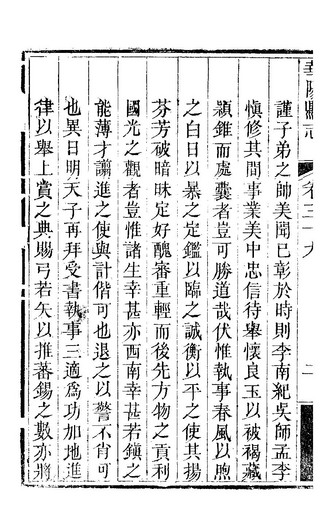 華陽縣志
卷三十九
謹子弟之師美聞已彰於時則李南紀吳師孟李
愼修其間事業美中忠信待舉懷良玉以被褐藏
穎錐而處囊者豈可勝道哉伏惟執事春風以煦
之白日以暴之定鑑以臨之誠衡以平之使其揚
芬芳破暗昧定好醜審重輕而後先方物之貢利
國光之觀者豈惟諸生幸甚亦西南幸甚若鎭之
能薄才譾進之使與計偕可也退之以警不肖可
也異日明天子再拜受書執事三適爲功加地進
律以舉上賞之典賜弓若矢以推蕃錫之數亦將